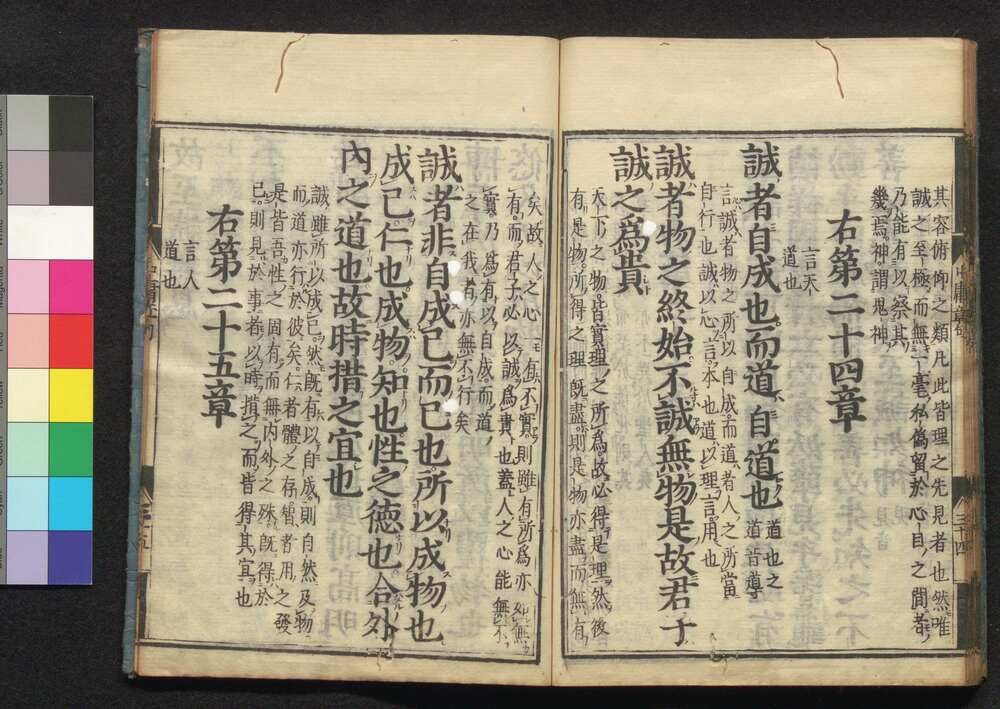 其容俯仰之類凡此皆理之先見者也然唯
誠之至極而無一毫私僞留於心目之間者
乃能有以察其
幾焉神謂鬼神
右第二十四章
言天
道也
誠者自成也而道自道也
道也之
道音導
言誠者物之所以自成而道者人之所當
自行也誠以心言本也道以理言用也
誠者物之終始不誠無物是故君子
誠之爲貴
天下之物皆實理之所爲故必得是理然後
有是物所得之理既盡則是物亦盡而無有
矣故人之心一有不實則雖有所爲亦如無
有而君子必以誠爲貴也蓋人之心能無不
實乃爲有以自成而道
之在我者亦無不行矣
誠者非自成己而已也所以成物也
成己仁也成物知也性之徳也合外
內之道也故時措之宜也
誠雖所以成己然既有以自成則自然及物
而道亦行於彼矣仁者體之存智者用之發
是皆吾性之固有而無内外之殊既得於
己則見於事者以時措之而皆得其宜也
右第二十五章
言人
道也